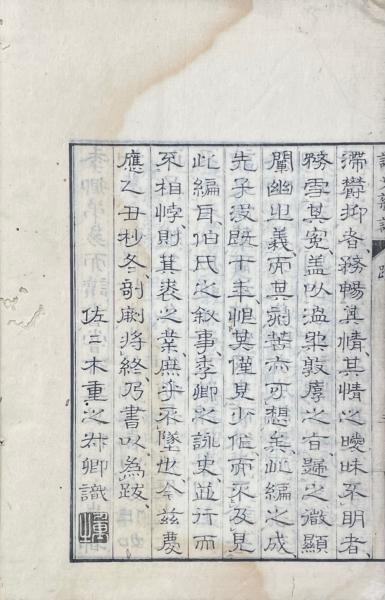 滯鬱抑者務暢其情其情之曖昧不明者
務雪其冤蓋以温柔敦厚之旨歸之微顯
闡幽也義而其刻苦亦可想矣此編之成
先子沒既十年恨其僅見少作而不及見
此編耳伯氏之叙事季卿之詠史並行而
不相悖則其裘之業庶乎不墜也今茲慶
應乙丑杪冬剞劂將終乃書以為跋
佐二木重之君卿識